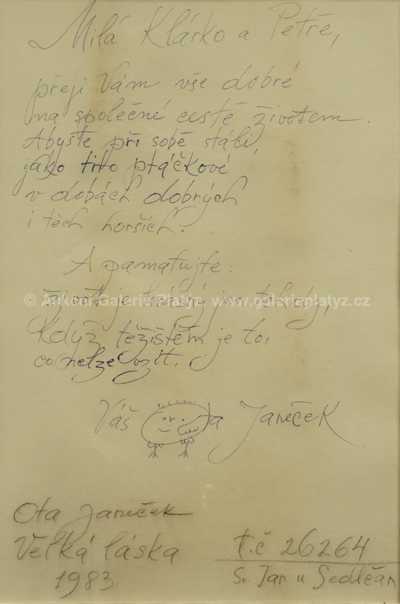 Milá Klárko a Petře,
přeji Vám vše dobré
na společné cestě životem.
Abyste při sobě stáli,
jako tito ptáčkové
v dobách dobrých
i těch horších.
A pamatujte:
život je krásný jen tehdy,
© Aukční Galerie Platýz, www.galerieplatyz.cz
když těžištěm je to,
co nelze vážit.
Váš Ota Janeček
Ota Janeček
Velká láska
1983
t.č 26264
S. Jan u Sedlčan